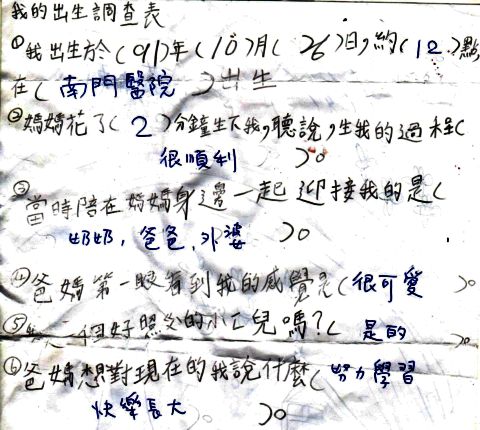 我的出生調查表
①我出生於(91)年(10)月(26)日,約(12)點,
在(南門醫院)出生
②媽媽花了(2)分鐘生下我,聽說,生我的過程(
很順利)。
③當時陪在媽媽身邊一起迎接我的是(
奶奶,爸爸,外婆)。
④爸媽第一眼看到我的感覺是(很可愛)。
⑤一個好照顧的小嬰兒嗎?(是的)。
⑥爸媽想對現在的我說什麼(努力學習
快樂長大)。